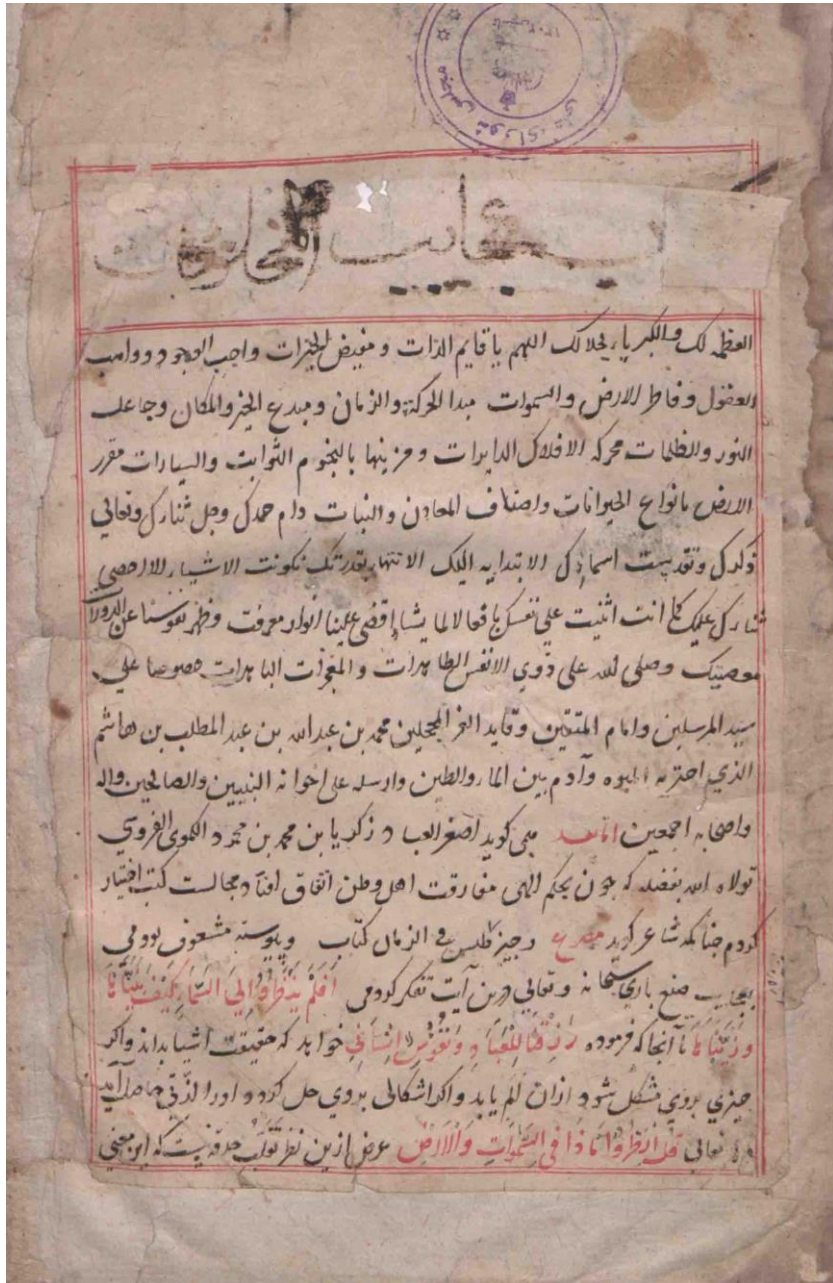 مجلس شورای ملی
عجایب المخلوقات
العظمه لک والکبریاء لجلالک اللهم یا قایم الذات و مفیض الخیرات واجب الوجود وواهب
العقول وفاطر الارض والسموات مبدا الحرکة والزمان ومبدع الحیز والمکان وجاعل
النور والظلمات محرک الافلاک الدایرات ومزینها بالنجوم الثوابت والسیارات مقرر
الارض بانواع الحیوانات واصناف المعادن والنبات دام حمدک وجل ثنارک وتعالی
ذکرک وتقدست اسماؤک الابتدا به الیک الانتها بقدرتک تکونت الاشیاء لا احصی
ثنارک علیک کما انت اثنیت علی نفسک یا فعالا لما یشاء اقض علینا انوار معرفت وطهر نفوسنا عن
معصیتک وصلی لله علی ذوی الانفس الطاهرات والمعجزات الباهرات خصوصا علی
سید المرسلین وامام المتقین وقاید الغر المحجلین محمد بن عبد الله بن عبد المطلب بن هاشم
الذی وآدم بین الماء والطین وارسله علی اخوانه النبیین والصالحین واله
واصحابه اجمعین اما بعد می کوید اصغر العباد زکریا بن محمد بن محمود الکموی القزوینی
تولاه الله بفضله که چون بحکم الهی مفارقت اهل وطن اتفاق افتاد مجالست کتب اختیار
کردم چنانکه شاعر کوید مصرع وجیز جلیس فی الزمان کتاب وپیوسته مشعوف بودمی
بعجایب صنع باری سبحانه وتعالی درین آیت تفکر کردمی اَفَلَمْ یَنْظُرُوا اِلَی السَّمَاءِ کَیْفَ بَنَیْنَاهَا
وَزَیَّنَّاهَا تا آنجا که فرموده رِزْقًا لِلْعِبَادِ وَنُفُوسِ اِنْسَانِی خواهد که حقیقت اشیا بداند واکر
چیزی بروی مشکل شود ازان الم یابد واکر اشکالی بروی حل کردد اورا لذتی حاصل آید
تعالی قُلِ انْظُرُوا مَاذَا فِی السَّمٰوَاتِ وَالْاَرْضِ غرض ازین نظر تقلب حدقه نیست که این معنی